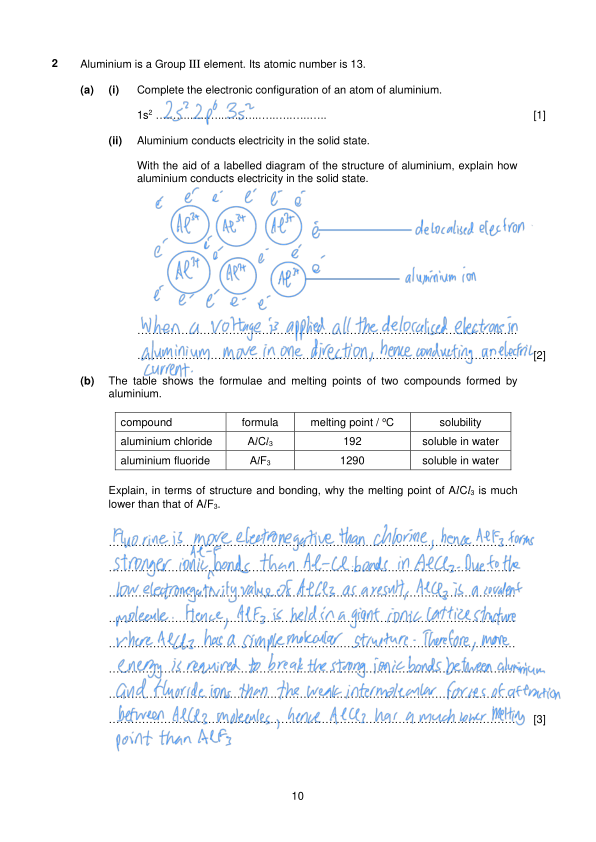 2 Aluminium is a Group III element. Its atomic number is 13.
(a) (i) Complete the electronic configuration of an atom of aluminium.
1s² 2s² 2p⁶ 3s² [1]
(ii) Aluminium conducts electricity in the solid state.
With the aid of a labelled diagram of the structure of aluminium, explain how
aluminium conducts electricity in the solid state.
e⁻ e⁻ e⁻ e⁻ e⁻ e⁻
Al³⁺ Al³⁺ Al³⁺ e⁻ delocalised electron
e⁻ e⁻ e⁻ e⁻ e⁻
Al³⁺ Al³⁺ Al³⁺ e⁻ aluminium ion
e⁻ e⁻ e⁻ e⁻ e⁻
When a voltage is applied all the delocalised electrons in
aluminium move in one direction, hence conducting an electric [2]
current.
(b) The table shows the formulae and melting points of two compounds formed by
aluminium.
compound formula melting point / °C solubility
aluminium chloride AlCl₃ 192 soluble in water
aluminium fluoride AlF₃ 1290 soluble in water
Explain, in terms of structure and bonding, why the melting point of AlCl₃ is much
lower than that of AlF₃.
Fluorine is more electronegative than chlorine, hence AlF₃ forms
Al-F
stronger ionic bonds than Al-Cl bonds in AlCl₃. Due to the
low electronegativity value of AlCl₃ as a result, AlCl₃ is a covalent
molecule. Hence, AlF₃ is held in a giant ionic lattice structure
where AlCl₃ has a simple molecular structure. Therefore, more
energy is required to break the strong ionic bonds between aluminium
and fluoride ions than the weak intermolecular forces of attraction
between AlCl₃ molecules, hence AlCl₃ has a much lower melting [3]
point than AlF₃
10